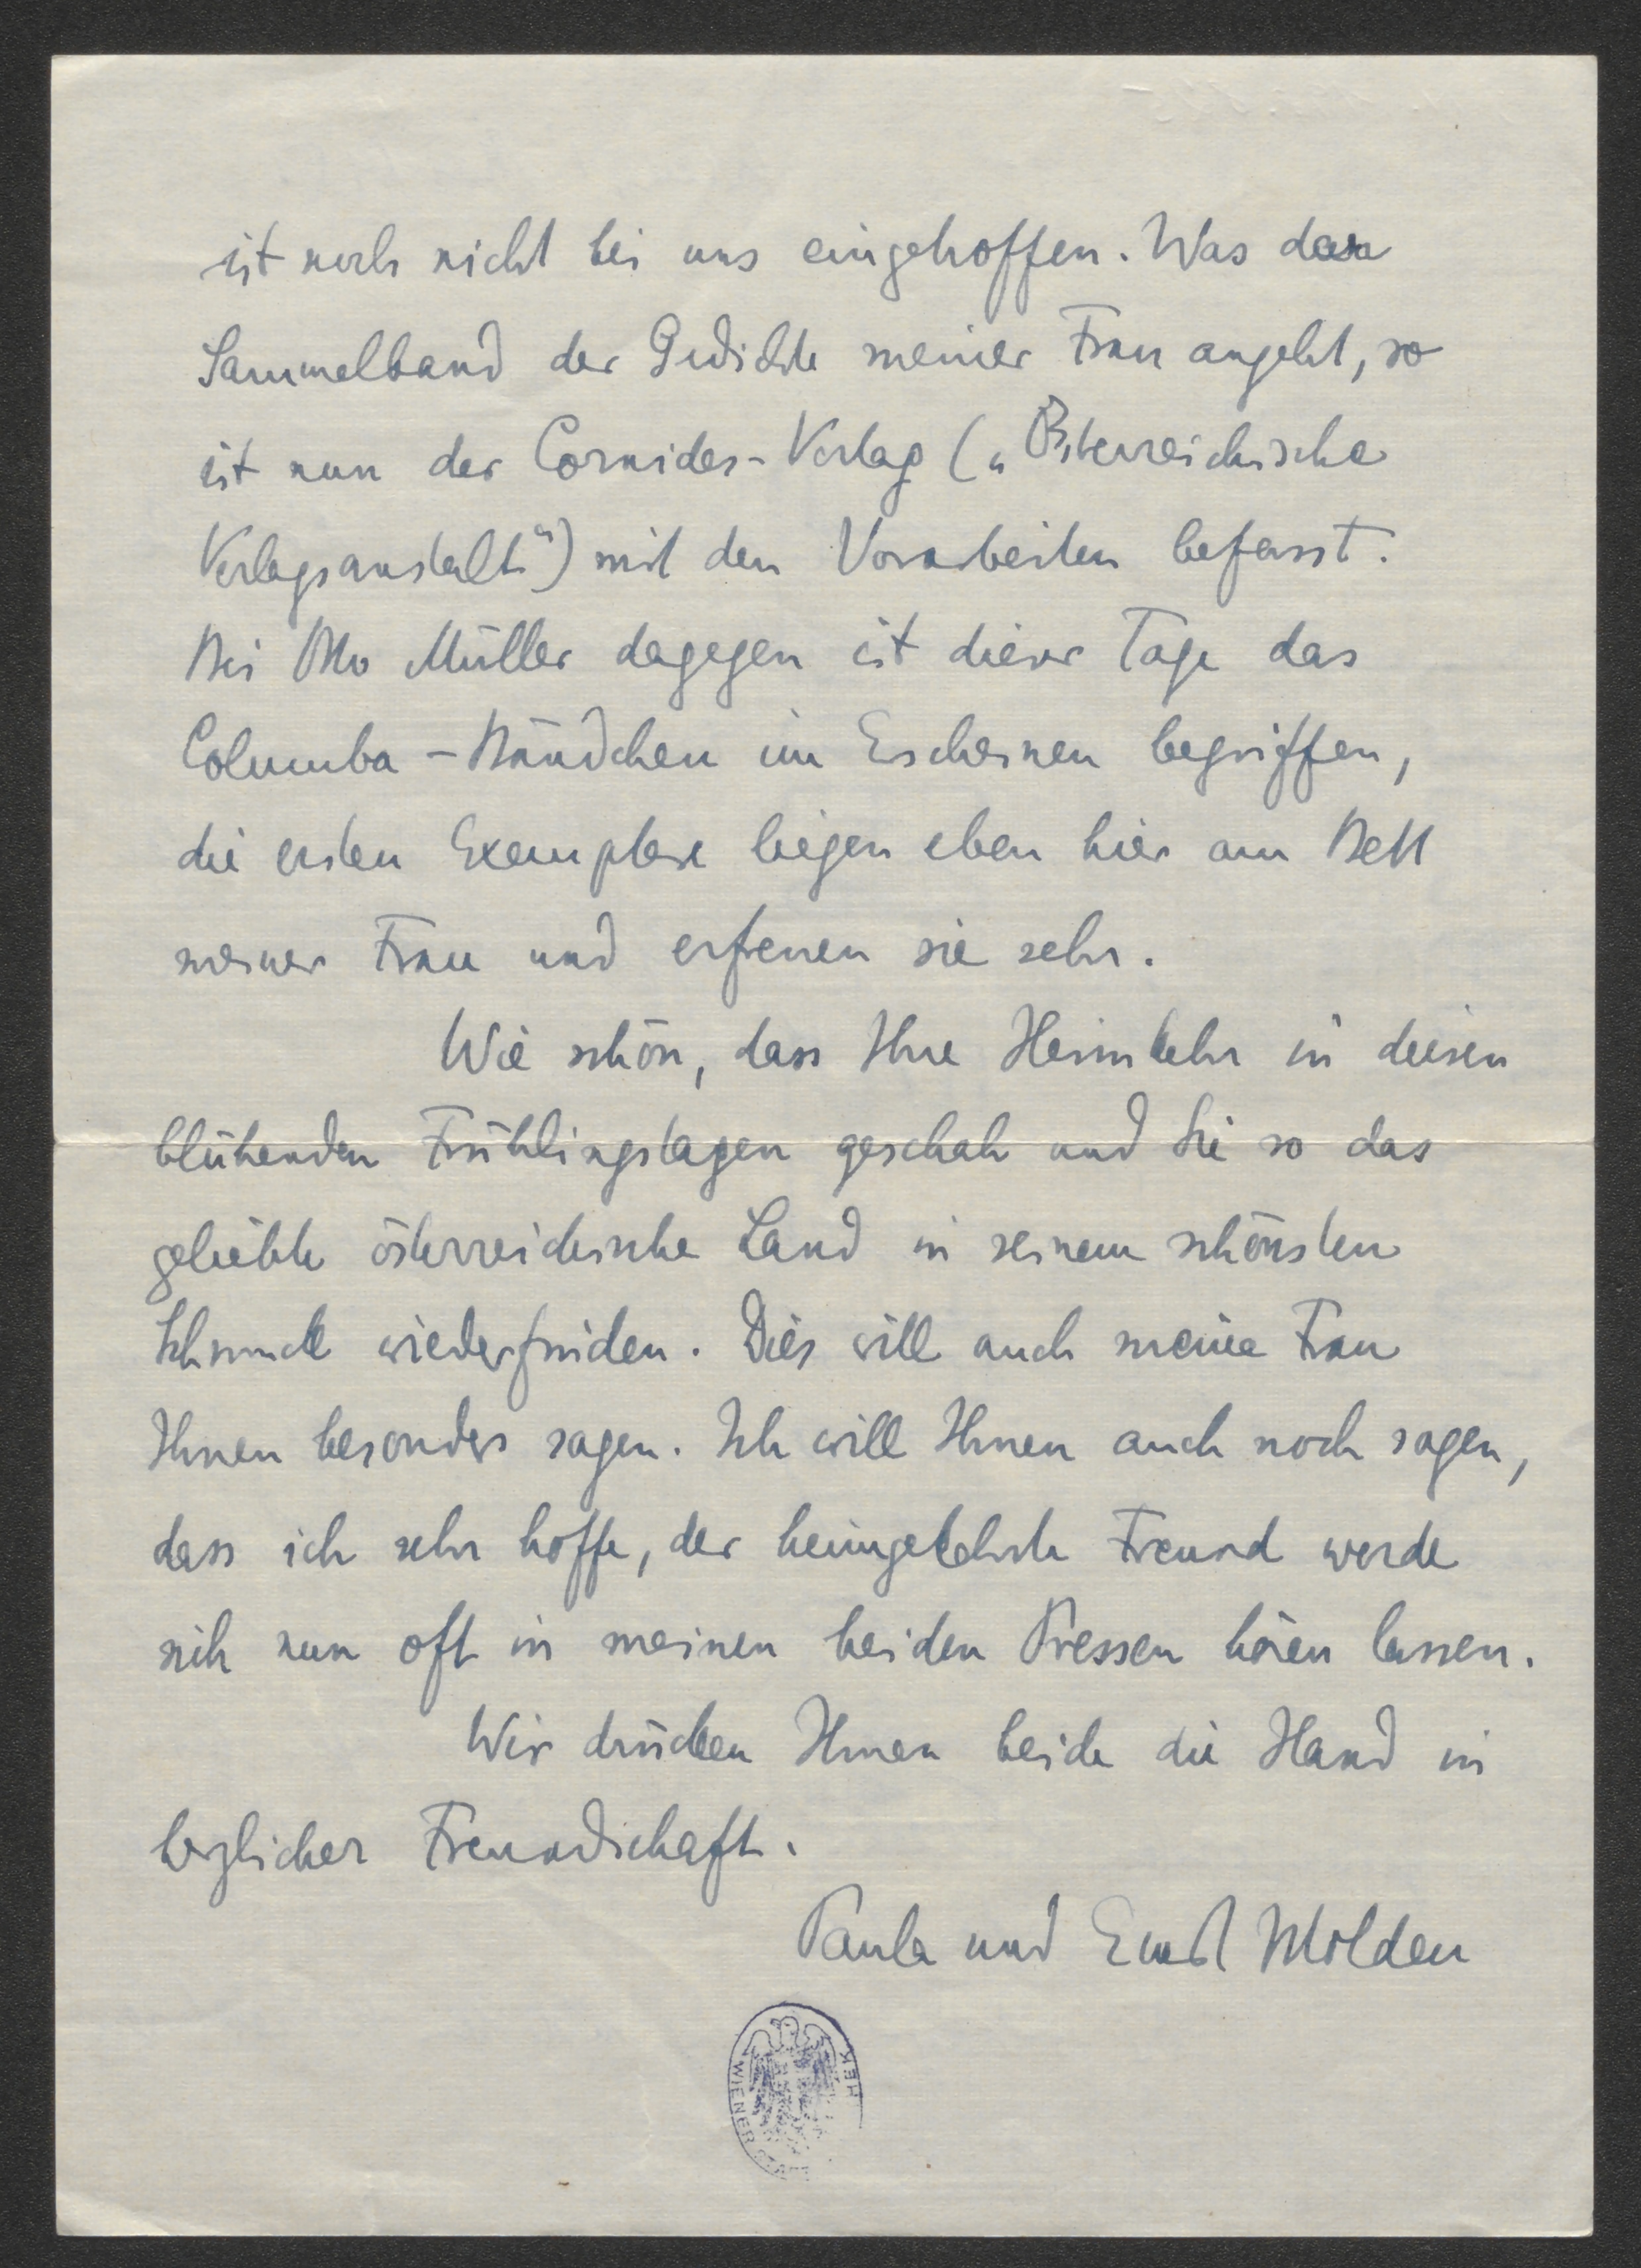 ist noch nicht bei uns eingetroffen. Was den
Sammelband der Gedichte meiner Frau angeht, so
ist nun der Cornides-Verlag („Österreichische
Verlagsanstalt“) mit den Vorarbeiten befasst.
Bei Otto Müller dagegen ist dieser Tage das
Columba-Bändchen im Erscheinen begriffen,
die ersten Exemplare liegen eben hier am Bett
meiner Frau und erfreuen sie sehr.
Wie schön, dass Ihre Heimkehr in diesen
blühenden Frühlingstagen geschah und Sie so das
geliebte österreichische Land in seinem schönsten
Schmuck wiederfinden. Dies will auch meine Frau
Ihnen besonders sagen. Ich will Ihnen auch noch sagen,
dass ich sehr hoffe, der heimgekehrte Freund werde
sich nun oft in meinen beiden Pressen hören lassen.
Wir drücken Ihnen beide die Hand in
herzlicher Freundschaft.
Paula und Ernst Molden
WIENER
HEK